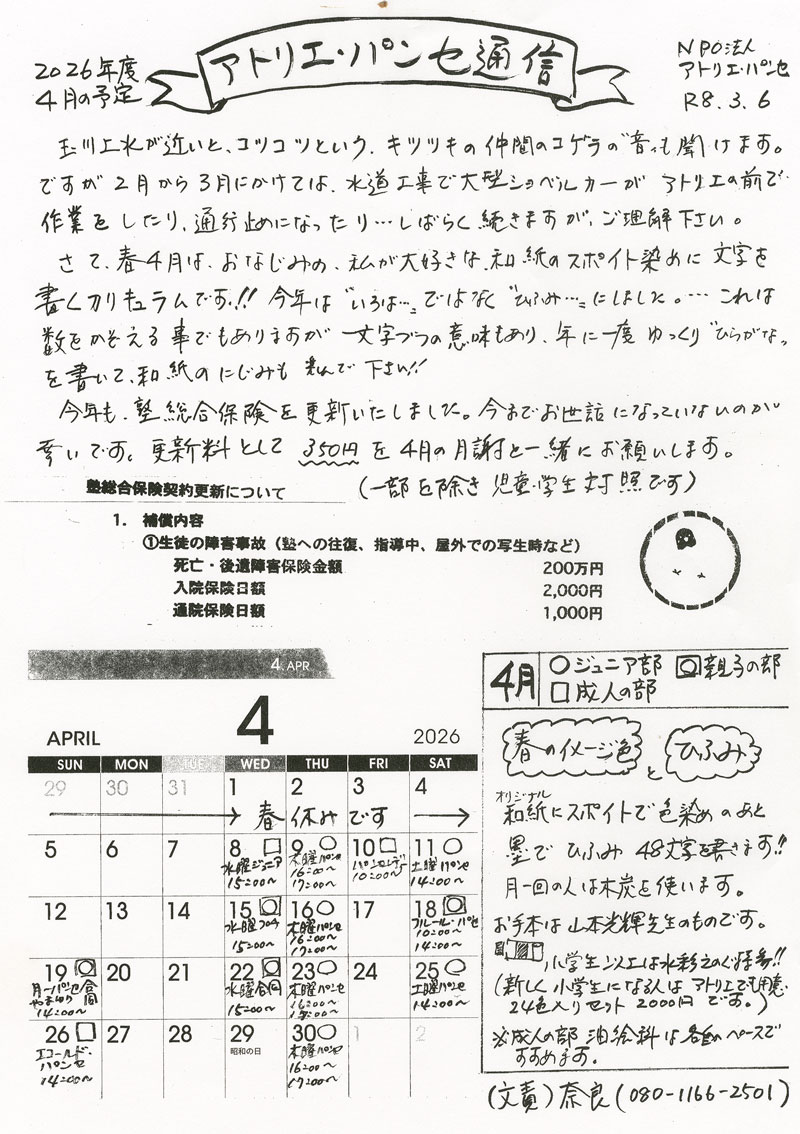 アトリエ・パンセ通信
2026年度
4月の予定
NPO法人
アトリエ・パンセ
R8.3.6
玉川上水が近いと、コツコツという、キツツキの仲間のコゲラの音も聞けます。
ですが2月から3月にかけては、水道工事で大型ショベルカーがアトリエの前で
作業をしたり、通行止めになったり…しばらく続きますが、ご理解下さい。
さて、春4月は、おなじみの、私が大好きな和紙のスポイト染めに文字を
書くカリキュラムです!! 今年は"いろは…"ではなく"ひふみ…"にしました。…これは
数をかぞえる事でもありますが一文字づつの意味もあり、年に一度ゆっくり"ひらがな"
を書いて、和紙のにじみも 下さい!!
今年も、塾総合保険を更新いたしました。今までお世話になっていないのが
幸いです。更新料として350円を4月の月謝と一緒にお願いします。
(一部を除き児童・学生対照です)
塾総合保険契約更新について
1. 補償内容
①生徒の障害事故(塾への往復、指導中、屋外での写生時など)
死亡・後遺障害保険金額 200万円
入院保険日額 2,000円
通院保険日額 1,000円
4. APR
APRIL 4 2026
SUN MON TUE WED THU FRI SAT
29 30 31 1 2 3 4
春休みです
5 6 7 8 9 10 11
水曜ジュニア
15:00〜
木曜パンセ
16:00〜
17:00〜
10:00〜
土曜パンセ
14:00〜
12 13 14 15 16 17 18
水曜
15:00〜
木曜パンセ
16:00〜
17:00〜
フルール・パンセ
10:00〜
14:00〜
19 20 21 22 23 24 25
月一パンセ
合同
14:00〜
水曜合同
15:00〜
木曜パンセ
16:00〜
17:00〜
土曜パンセ
14:00〜
26 27 28 29 30 1 2
エコールド・
パンセ
14:00〜
昭和の日
木曜パンセ
16:00〜
17:00〜
4月
○ジュニア部 親子の部
□成人の部
春のイメージ色
と
ひふみ
オリジナル
和紙にスポイトで色染めのあと
墨でひふみ48文字を書きます!!
月一回の人は木炭を使います。
お手本は山本光輝先生のものです。
小学生以上は水彩えのぐ持参!!
(新しく小学生になる人はアトリエでも用意
24色入りセット2000円です。)
※成人の部 油絵科は各自のペースで
すすめます。
(文責)奈良(080-1166-2501)